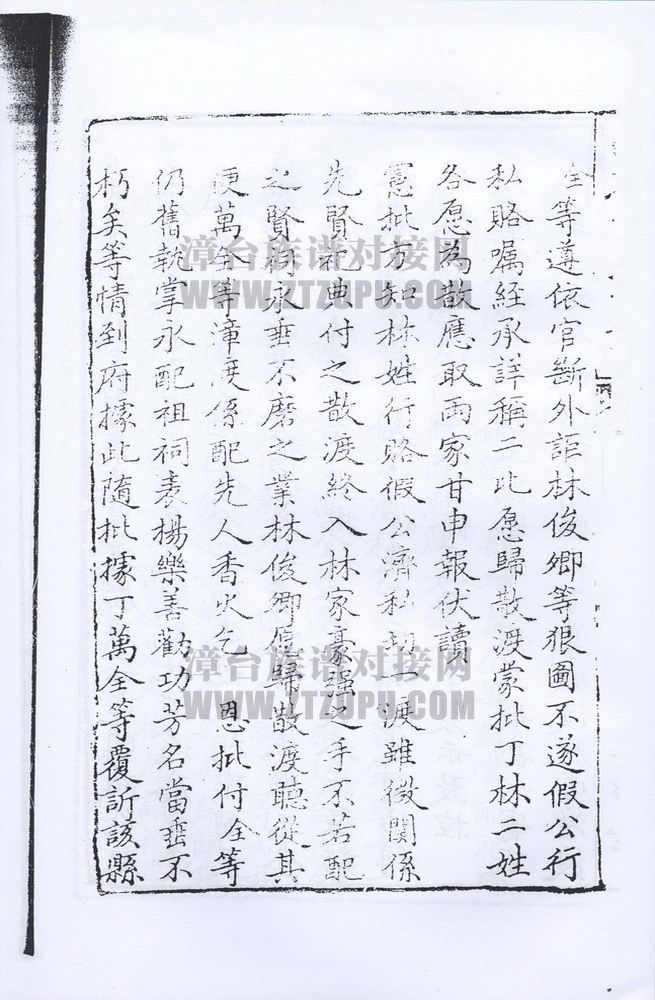 全等遵依官斷外詎林俊卿等狠圖不遂假公行
私賂嘱經承詳稱二比愿歸散渡蒙批丁林二姓
各愿為散應取两家甘申報伏讀
憲批方知林姓行賂假公濟私一渡雖微関係
先賢祀典付之散渡終入林家豪强之手不若配
之賢祠永垂不磨之業林俊卿愿歸散渡聽從其
便萬全等漳渡係配先人香火乞 恩批付全等
仍舊執掌永配祖祠表楊樂善勸功芳名當垂不
朽矣等情到府據此随批據丁萬全等覆訴該縣
漳台族谱对接网
WWW.ZTZUPU.COM
漳台族谱对接网
WWW.ZTZUPU.COM